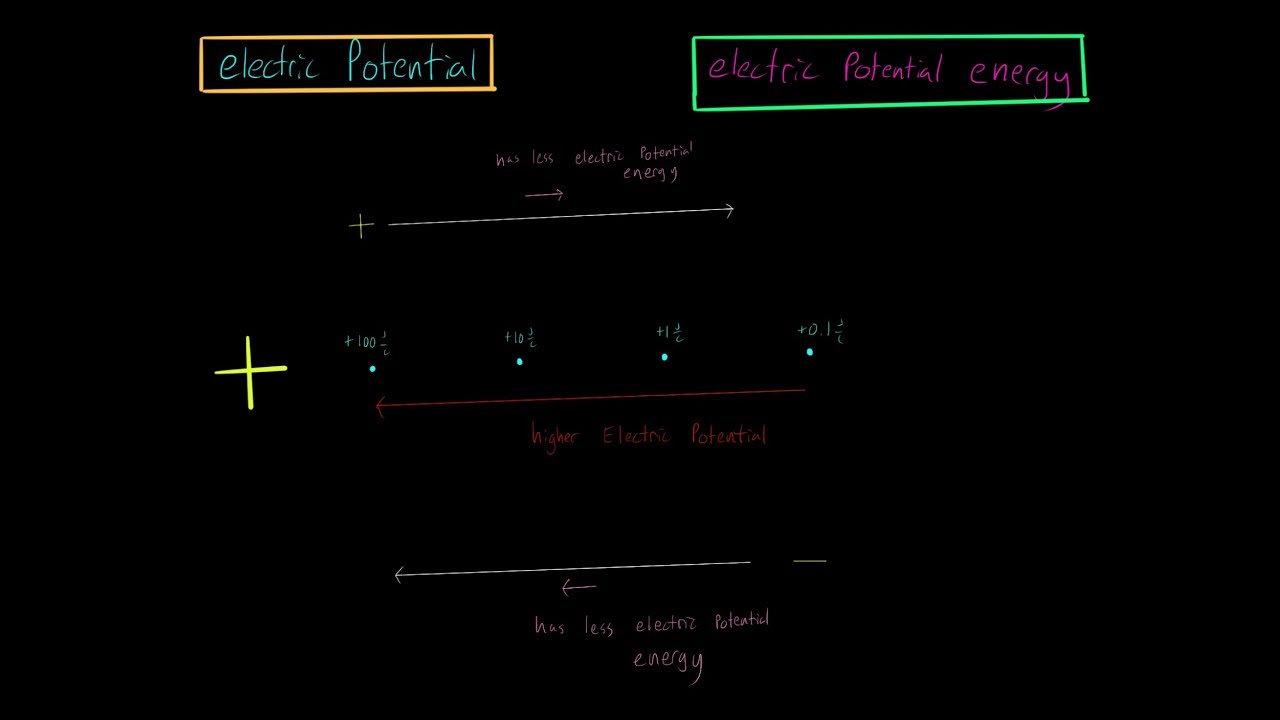 electric Potential
electric Potential energy
has less electric Potential
energy
+
+100 J/C
+10 J/C
+1 J/C
+0.1 J/C
+
higher Electric Potential
−
has less electric Potential
energy